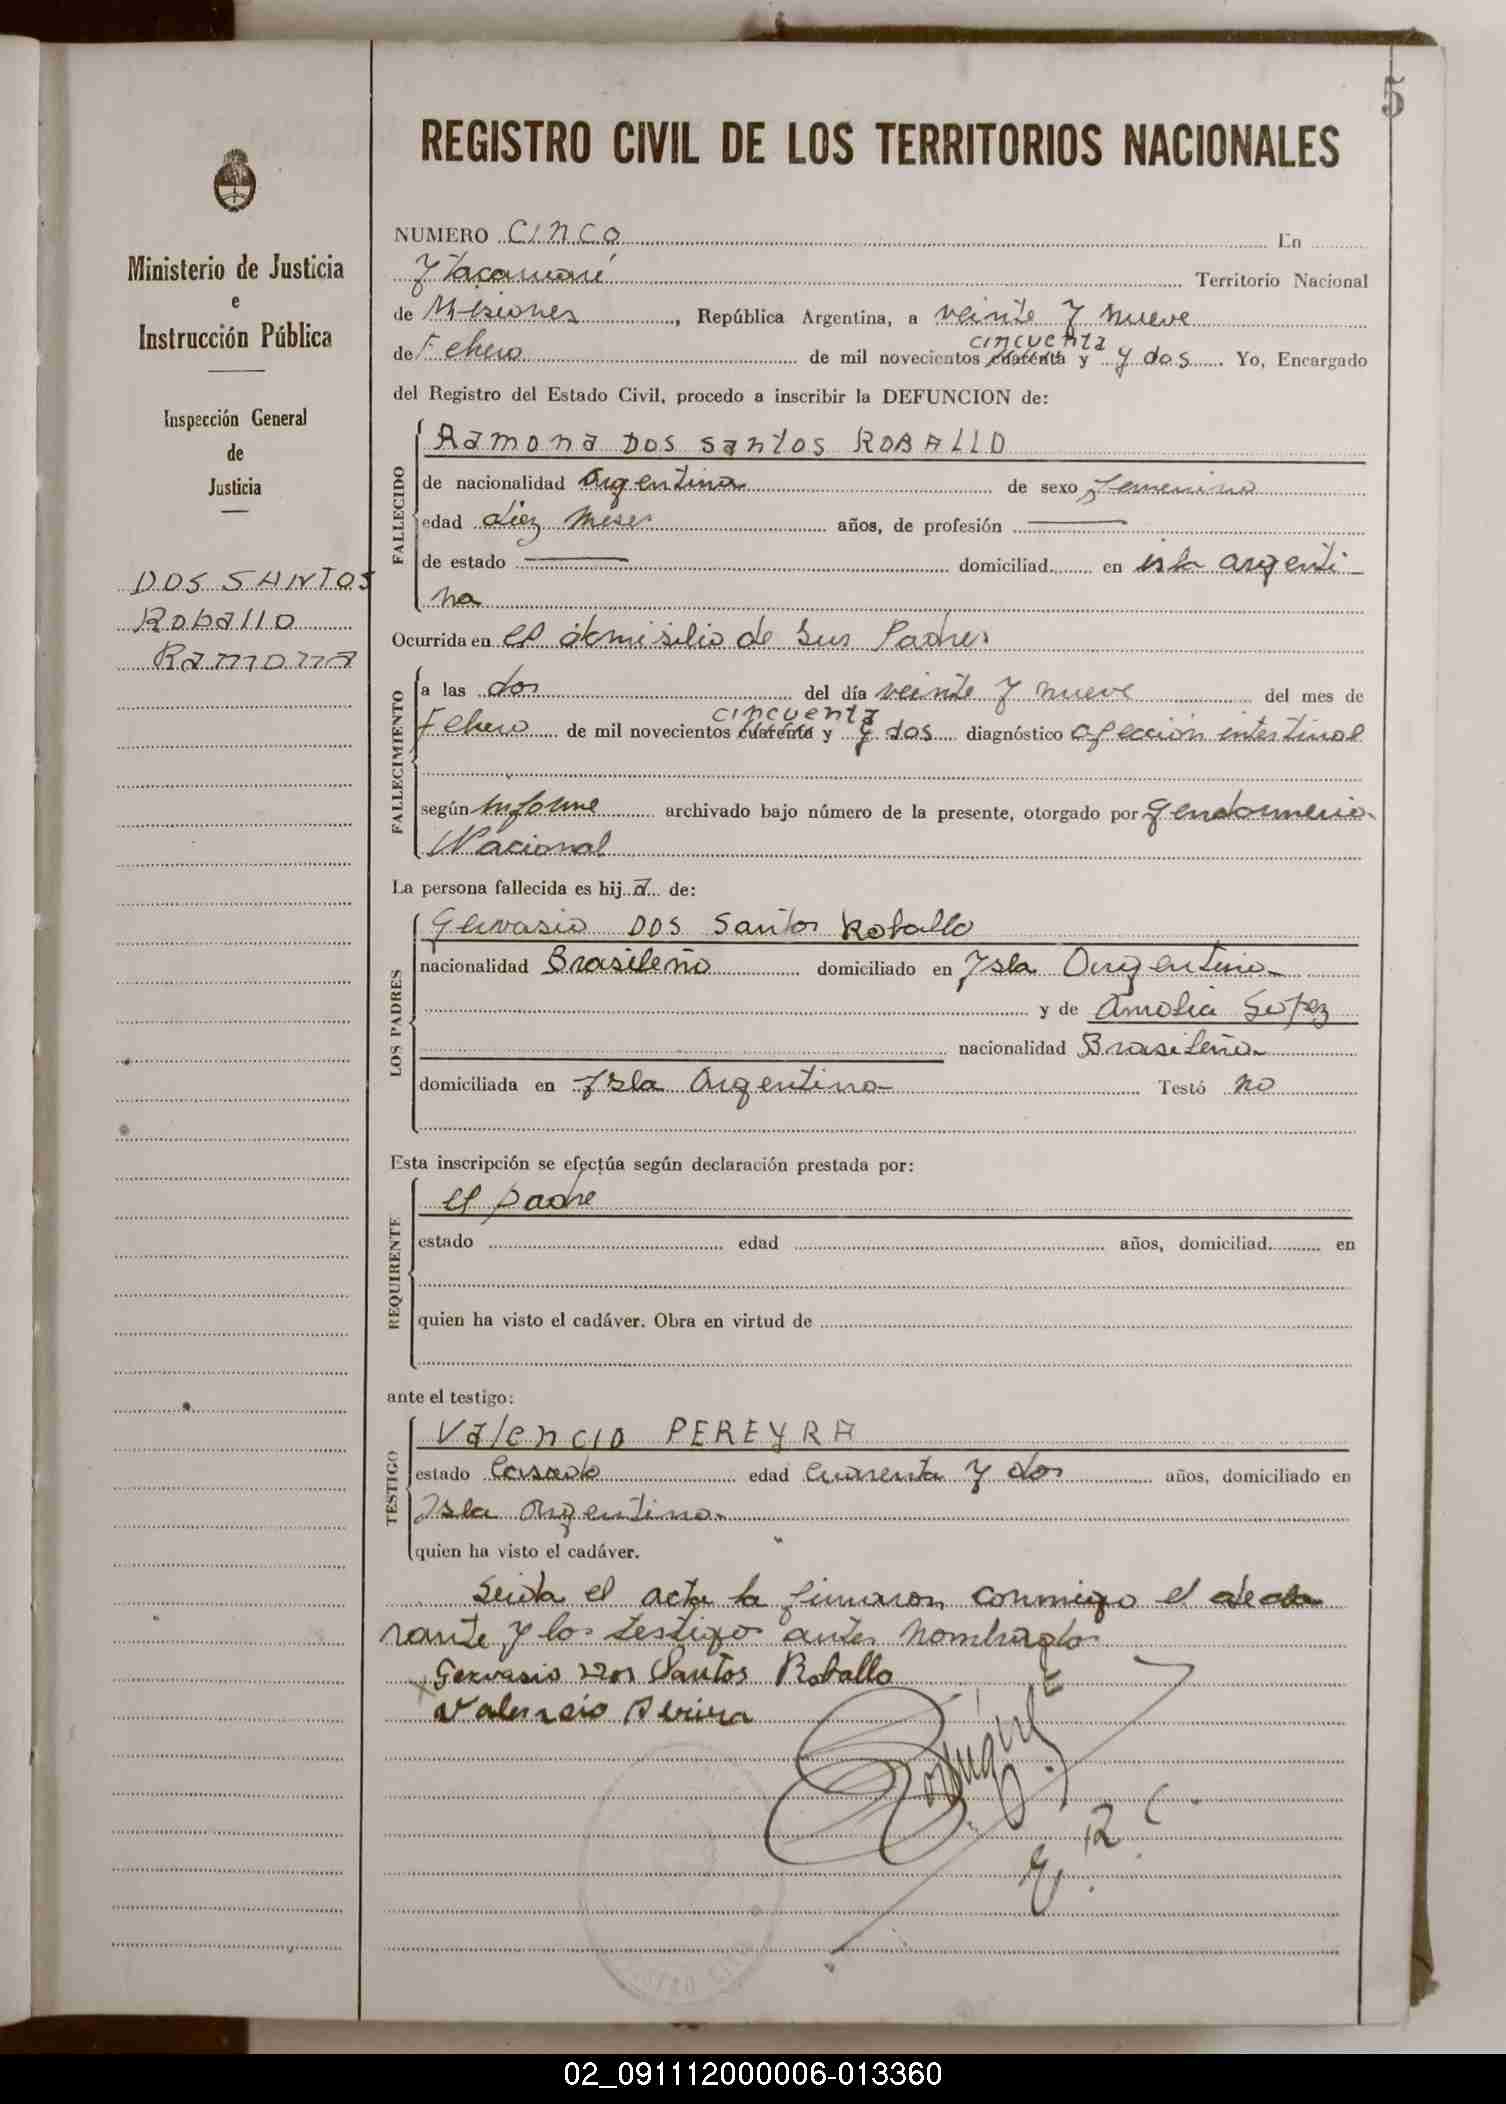 5
REGISTRO CIVIL DE LOS TERRITORIOS NACIONALES
Ministerio de Justicia
e
Instrucción Pública
Inspección General
de
Justicia
DOS SANTOS
Roballo
Ramona
NUMERO CINCO En
Ytacaruaré Territorio Nacional
de Misiones, República Argentina, a veinte y nueve
de Febero de mil novecientos cuarenta cincuenta y y dos Yo, Encargado
del Registro del Estado Civil, procedo a inscribir la DEFUNCION de:
FALLECIDO
Ramona Dos Santos ROBALLO
de nacionalidad Argentina de sexo femenino
edad diez meses años, de profesión
de estado domiciliad en isla argenti-
na
Ocurrida en el domisilio de sus Padres
FALLECIMIENTO
a las dos del día veinte y nueve del mes de
Febero de mil novecientos cuarenta cincuenta y y dos diagnóstico afeccion intestinal
según informe archivado bajo número de la presente, otorgado por Gendarmeria
Nacional
La persona fallecida es hija de:
LOS PADRES
Gervasio DOS Santos Roballo
nacionalidad Brasileño domiciliado en Isla Argentina
y de Amalia Lopez
nacionalidad Brasileña
domiciliada en Isla Argentina Testó no
Esta inscripción se efectúa según declaración prestada por:
REQUIRENTE
el padre
estado edad años, domiciliad en
quien ha visto el cadáver. Obra en virtud de
ante el testigo:
TESTIGO
Valencio PEREYRA
estado Casado edad cuarenta y dos años, domiciliado en
Isla Argentina
quien ha visto el cadáver.
Leida el acta la firmaron conmigo el decla
rante y los testigos antes nombrados
Gervasio Dos Santos Roballo
Valensio Pereira
E. R. C.
02_091112000006-013360